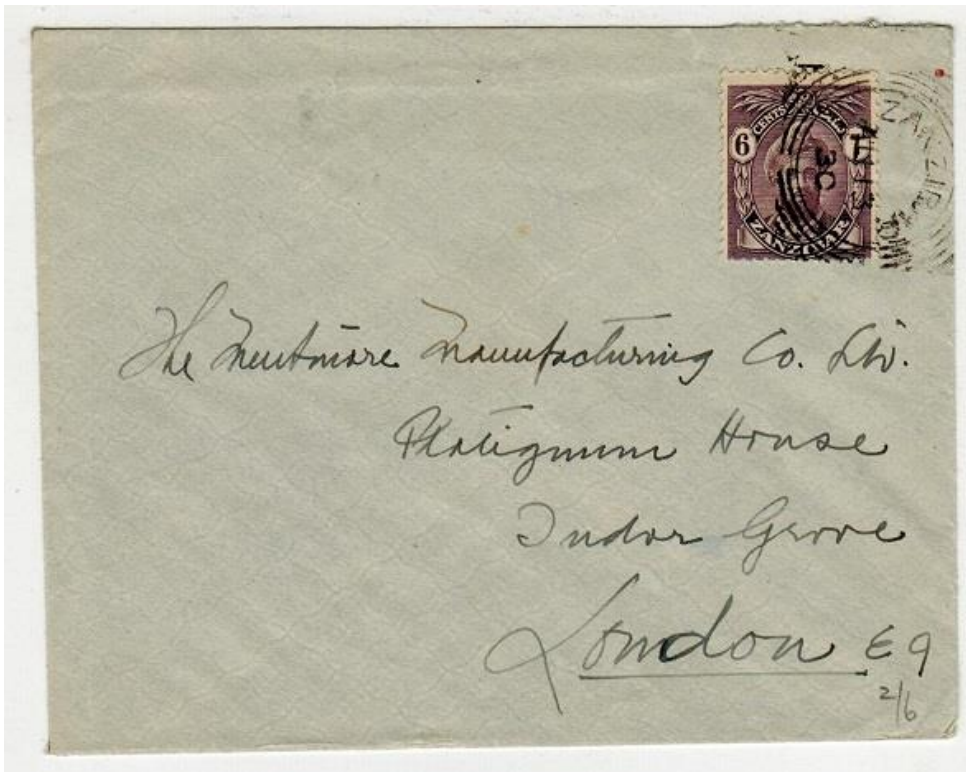 CENTS
6
ZANZIBAR
ZANZIBAR
30
The Mentmore Manufacturing Co. Ltd.
Platignum House
Tudor Grove
London E9
2/6